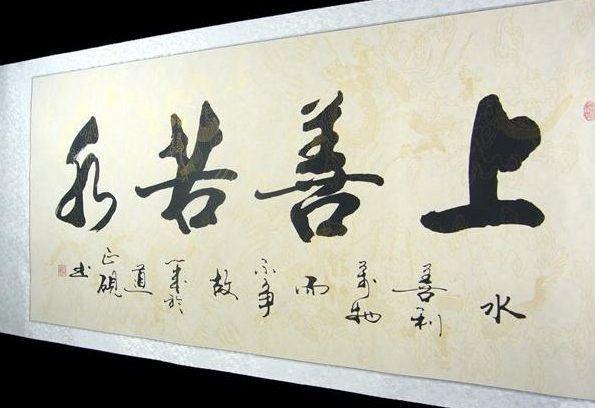 上善若水
水善利萬物而不争故幾於道
正硯书